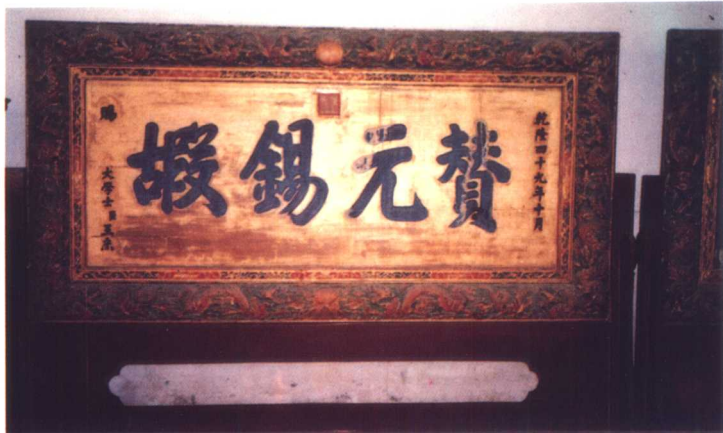 乾隆四十九年十月
賛元錫嘏
賜
大學士